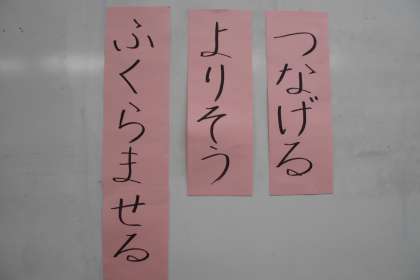 つなげる
よりそう
ふくらませる